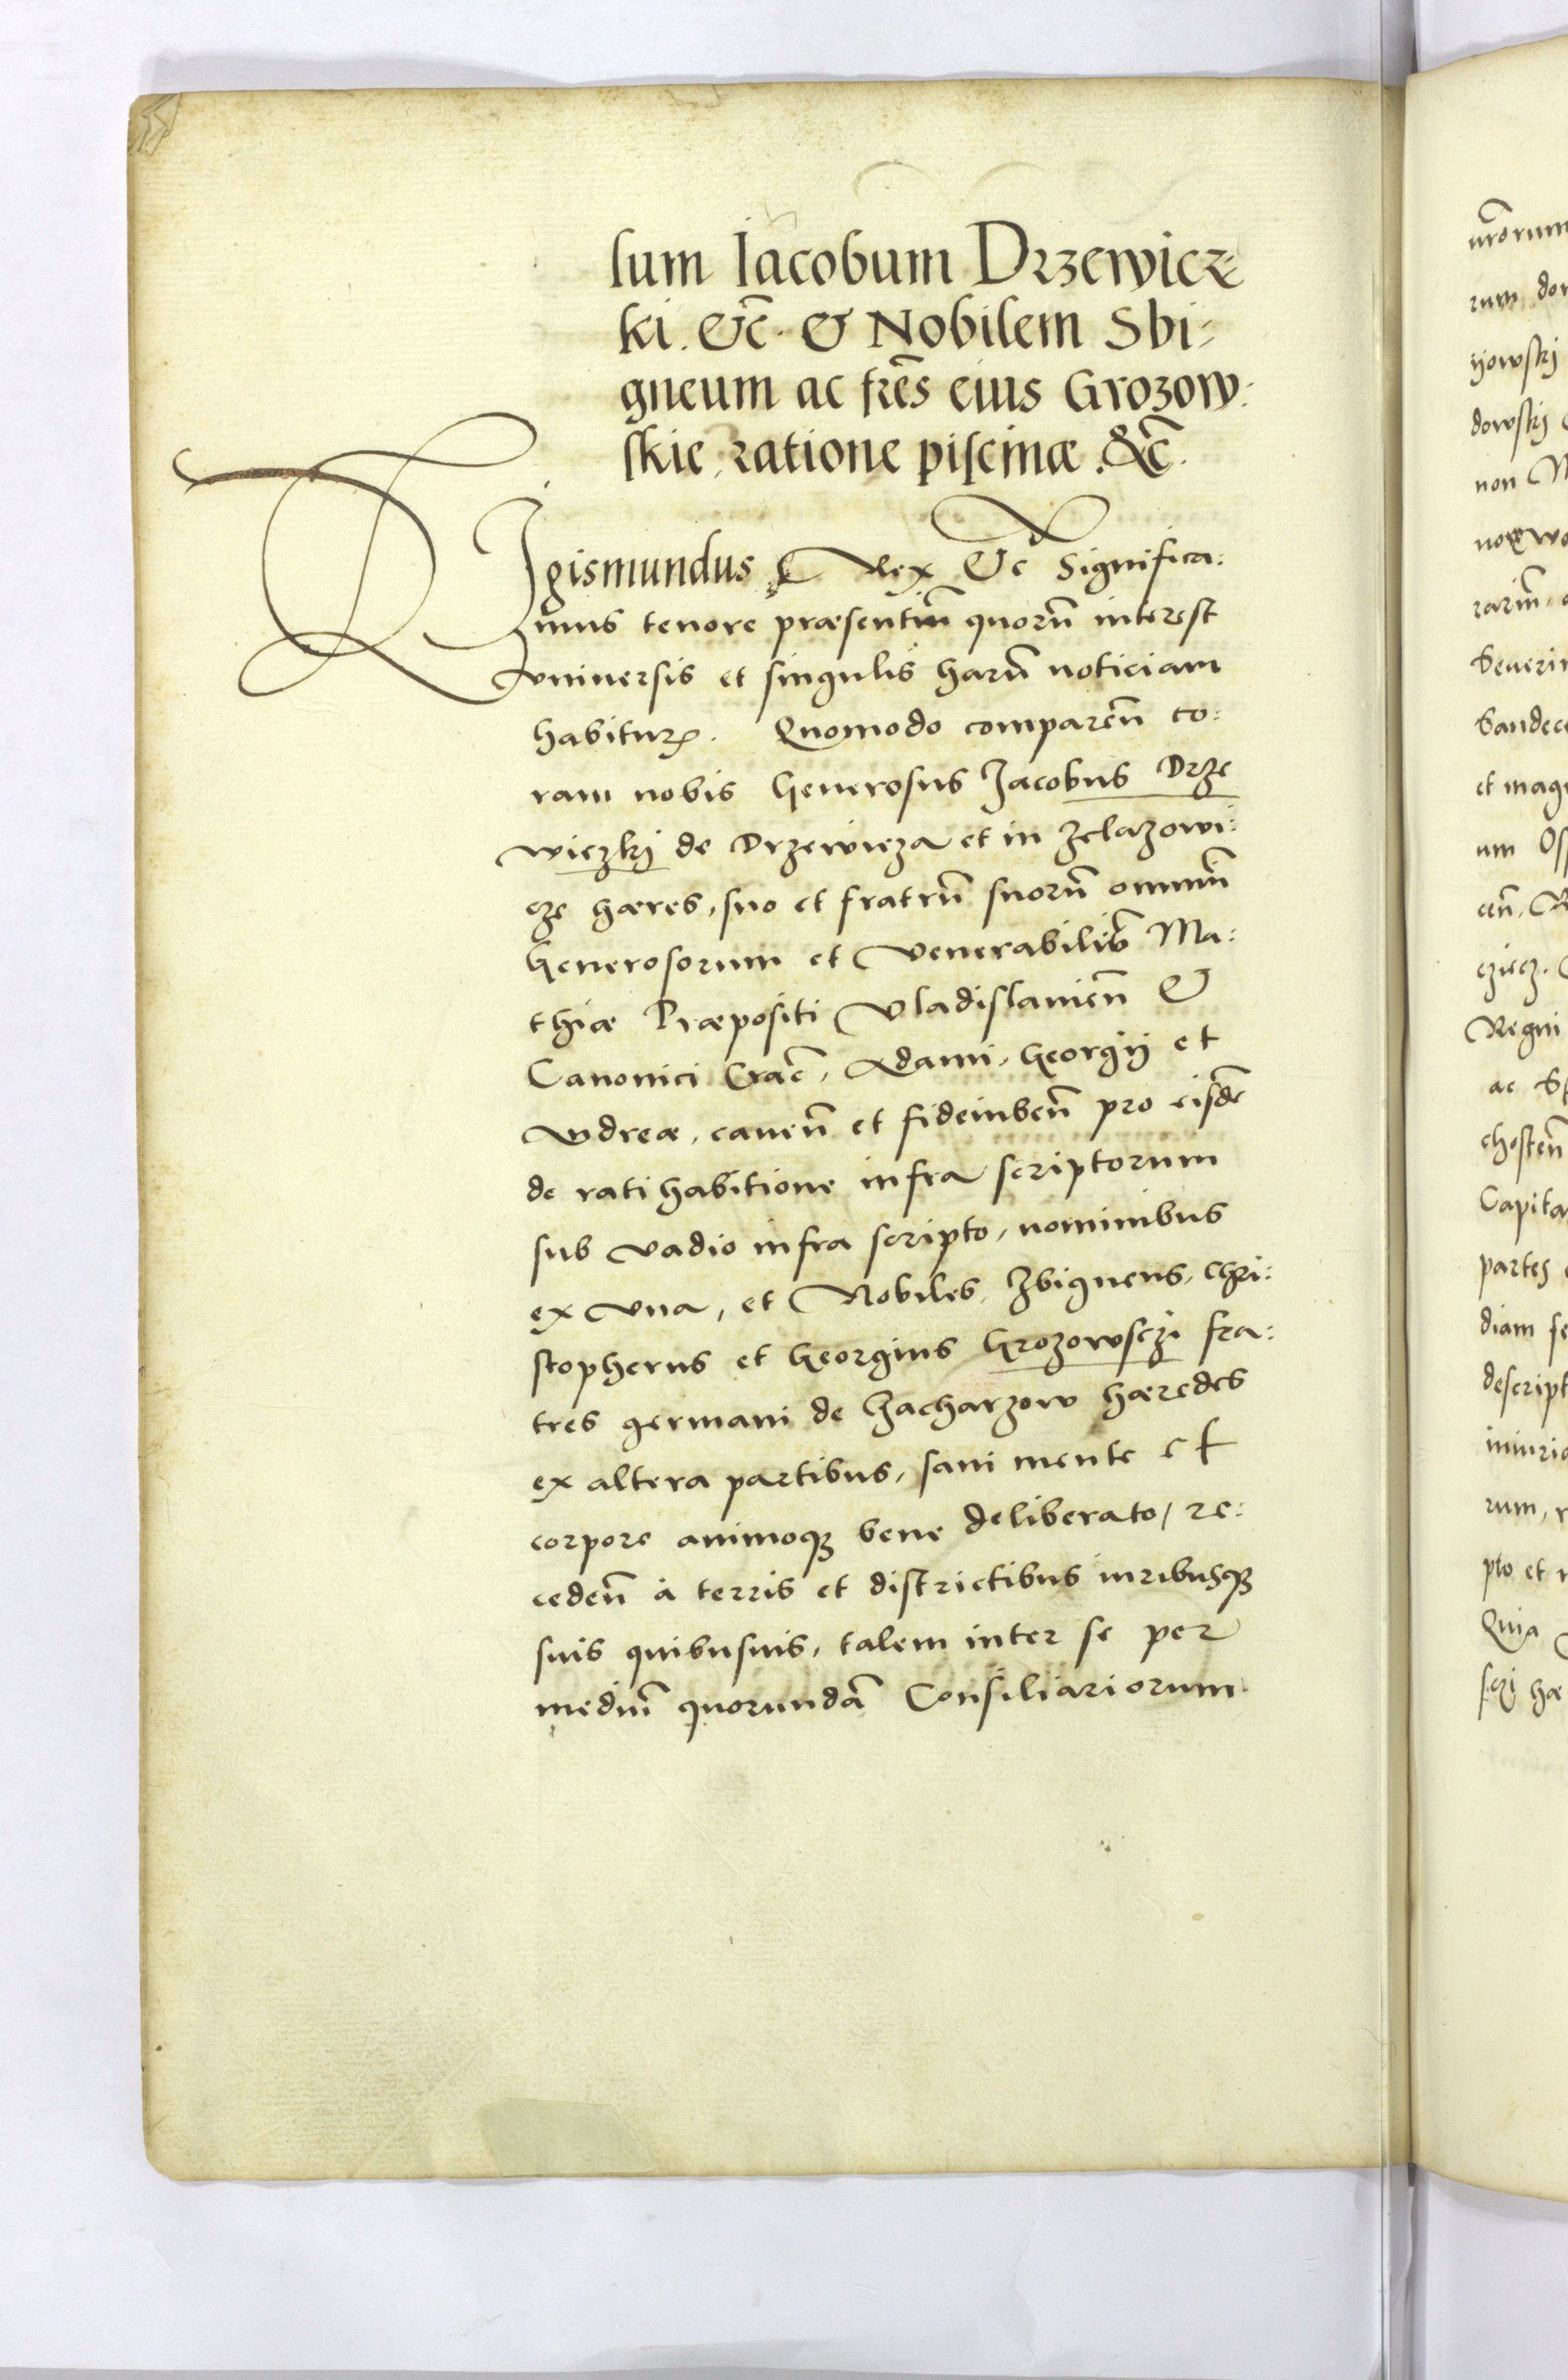 sum Jacobum Drzewicz
ki. &c̃. & Nobilem Sbi-
gneum ac frẽs eius Grozow-
skie, ratione piscinæ. &c̃.
Sigismundus Rex &c Significa:
mus tenore præsentiũ quorũ interest
vniuersis et singulis harũ noticiam
habituꝝ. Quomodo compareñ co:
ram nobis Generosus Jacobus Drze
wiczkj de Drzewicza et in Zelazowi:
cze hæres, suo et fratrũ suorũ omniũ
Generosorum et Venerabiliũ Ma:
thiæ Præpositi Vladislauieñ &
Canonici Crac̃, Adami, Georgij et
Andreæ, caueñ et fideiubeñ pro eisdẽ
de rati habitione infra scriptorum
sub vadio infra scripto, nominibus
ex vna, et Nobiles, Zbigneus, Chri:
stopherus et Georgius Grozowsczi fra:
tres germani de Zacharzow hæredes
ex altera partibus, sani mente et
corpore animoqꝫ bene deliberato, re:
cedeñ à terris et districtibus iuribusqꝫ
suis quibusuis, talem inter se per
mediũ quorundã Consiliariorum
nr̃orum
rum
dowskj
non
rariũ
Seueri
Sandec
et mag
um
ceñ,
cziecz.
Regni
ac
chosteñ
Capita
partes
diam se
descript
iniuria
rum,
pto et
Quia
sczi hæ